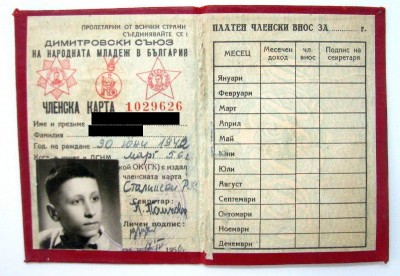 ПРОЛЕТАРИИ ОТ ВСИЧКИ СТРАНИ
СЪЕДИНЯВАЙТЕ СЕ!
ДИМИТРОВСКИ СЪЮЗ
НА НАРОДНАТА МЛАДЕЖ В БЪЛГАРИЯ
ЧЛЕНСКА КАРТА 1029626
Име и презиме
Фамилия
Год. на раждане 30 юни 1942
март 56
ОК(ГК) е издал
членската карта
Секретар:
Личен подпис:
ПЛАТЕН ЧЛЕНСКИ ВНОС ЗА г.
МЕСЕЦ Месечен доход чл. внос Подпис на секретаря
Януари
Февруари
Март
Април
Май
Юни
Юли
Август
Септември
Октомври
Ноември
Декември